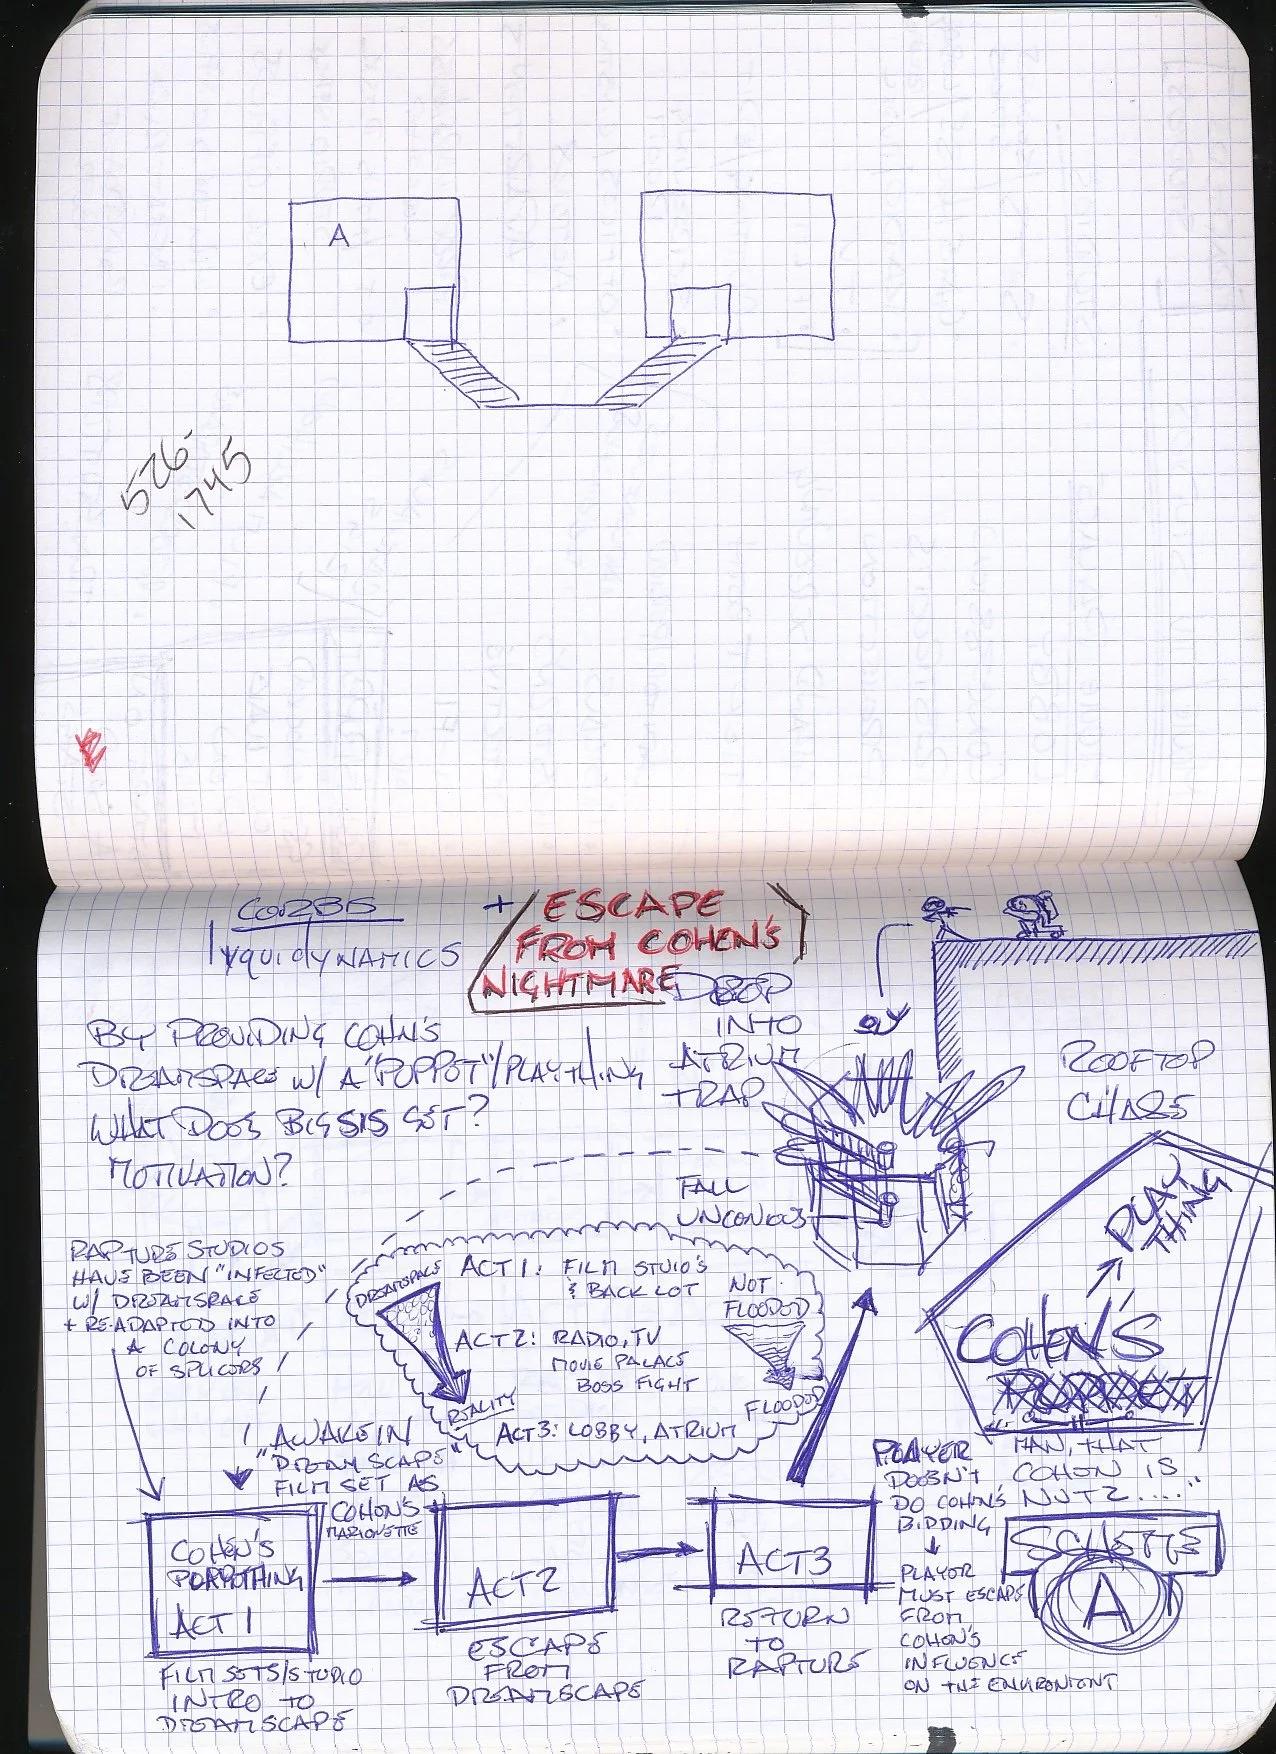 A
526-
1745
+ ESCAPE
FROM COHEN'S
NIGHTMARE
DROP
INTO
ATRIUM
TRAP
BY PROVIDING COHN'S
DREAMSPACE W/ A "PUPPET"/PLAYTHING
WHAT DOES BIG SIS GET?
MOTIVATION?
ROOFTOP
CHASE
FALL
UNCONIOUS
PLAY
THING
COHEN'S
PUPPET
RAPTURE STUDIOS
HAVE BEEN "INFECTED"
W/ DREAMSPACE
+ READAPTED INTO
A COLONY
OF SPLICERS
DREAMSPACE
REALITY
ACT 1: FILM STUIO'S
& BACK LOT
ACT 2: RADIO, TV
MOVIE PALACE
BOSS FIGHT
ACT 3: LOBBY, ATRIUM
NOT
FLOODED
FLOODED
AWAKE IN
"DREAM SCAPE"
FILM SET AS
COHEN'S
MARIONETTE
PLAYER
DOESN'T
DO COHEN'S
BIDDING
PLAYER
MUST ESCAPE
FROM
COHEN'S
INFLUENCE
ON THE ENVIRONMENT
MAN, THAT
COHEN IS
NUTZ....."
SCHEME
A
COHEN'S
ACT 1
FILM SETS/STUDIO
INTRO TO
DREAMSCAPE
ACT 2
ESCAPE
FROM
DREAMSCAPE
ACT 3
RETURN
TO
RAPTURE